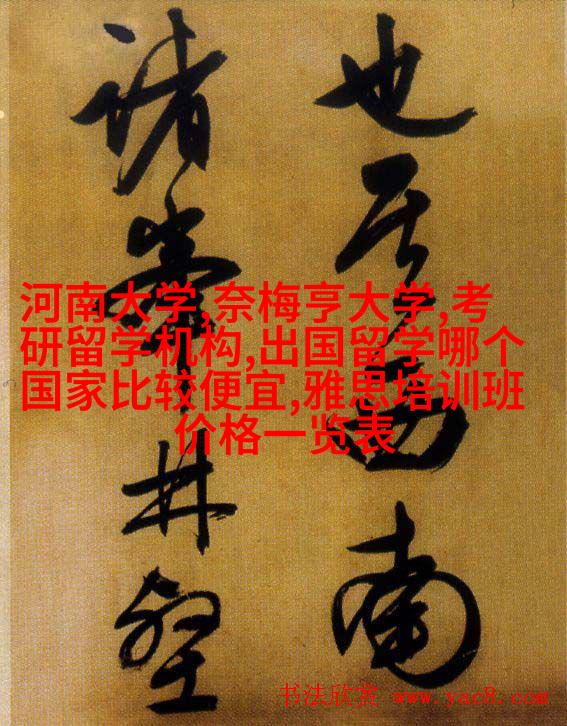 也其西南
諸峯林壑
河南大学,奈梅亨大学,考
研留学机构,出国留学哪个
国家比较便宜,雅思培训班
价格一览表
书法欣赏 www.yac8.com